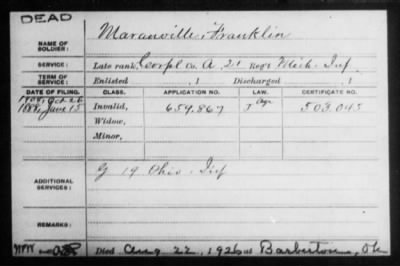 DEAD
NAME OF SOLDIER: Maranville, Franklin
SERVICE: Late rank, Corpl Co. A, 21 Reg't Mich. Inf
TERM OF SERVICE: Enlisted , 1 Discharged , 1
DATE OF FILING. CLASS. APPLICATION NO. LAW. CERTIFICATE NO.
Age
Invalid, 659.867 503.045
Widow,
Minor,
ADDITIONAL SERVICES: G 19 Ohio Inf
REMARKS:
Died Aug 22, 1926 at Barberton, Oh